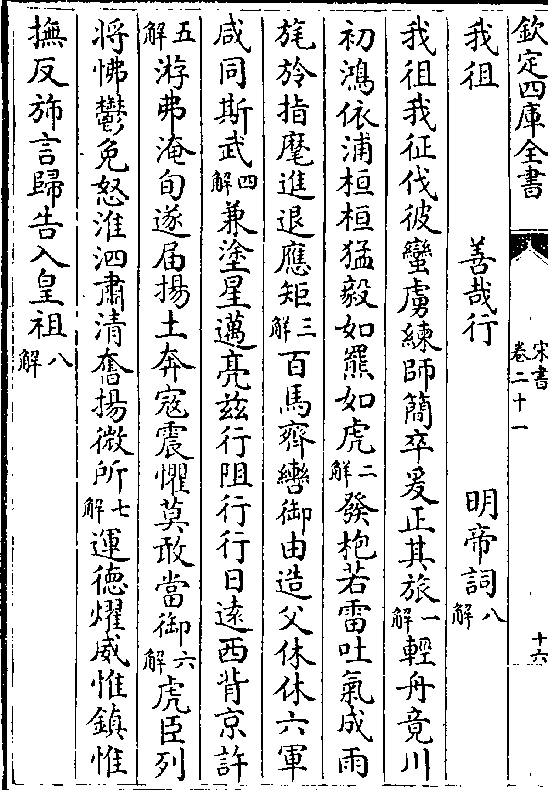 欽定四庫全書
宋書
卷二十一
十六
我徂　善哉行　明帝詞八解
我徂我征伐彼蠻虜練師簡卒爰正其旅一解輕舟竟川
初鴻依浦桓桓猛毅如羆如虎二解發枹若雷吐氣成雨
旄旍指麾進退應矩三解百馬齊轡御由造父休休六軍
咸同斯武四解兼塗星邁亮茲行阻行行日逺西背京許
五解游弗淹旬遂届揚土奔寇震懼莫敢當御六解虎臣列
將怫鬱免怒淮泗肅清奮揚微所七解運徳燿威惟鎮惟
撫反斾言歸告入皇祖八解